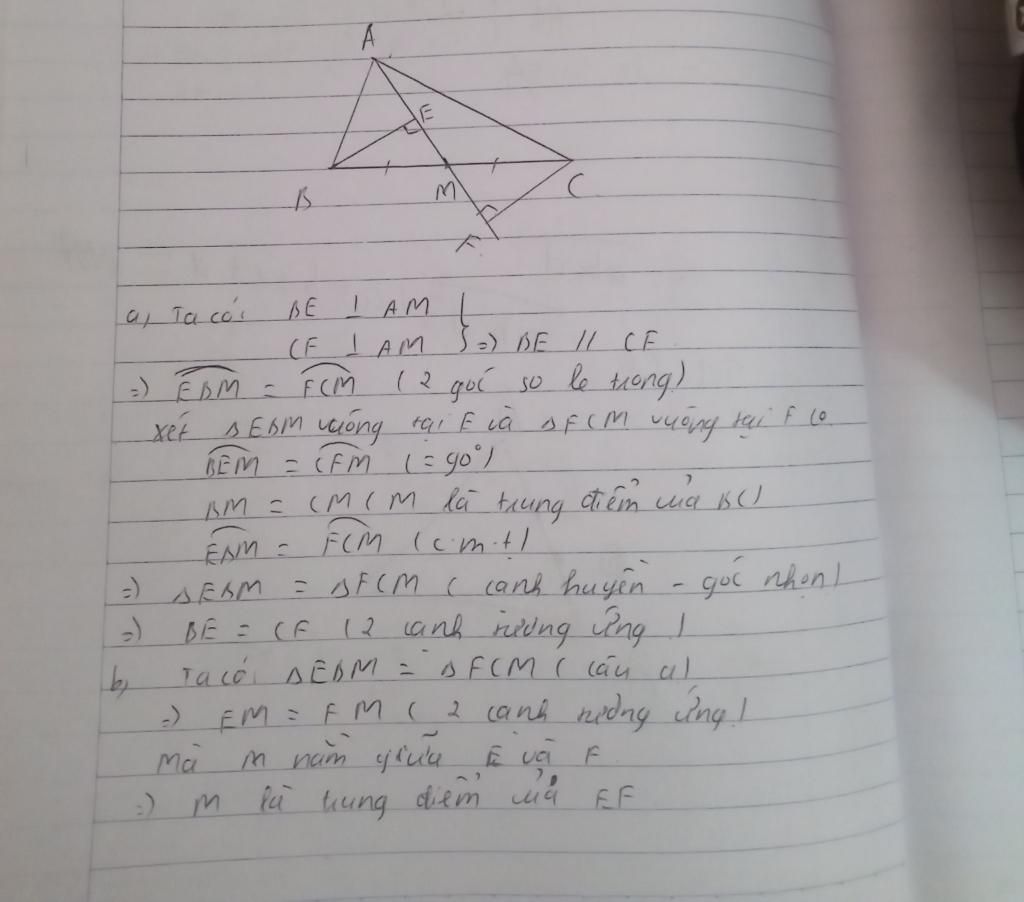 A
E
B
M
C
F
a, Ta có: BE ⊥ AM
CF ⊥ AM } => BE // CF
=> EBM = FCM ( 2 góc so le trong)
xét △EBM vuông tại E và △FCM vuông tại F có
BEM = CFM (= 90°)
BM = CM ( M là trung điểm của BC)
EBM = FCM (c.m.t)
=> △EBM = △FCM ( cạnh huyền - góc nhọn)
=> BE = CF (2 cạnh tương ứng )
b, Ta có: △EBM = △FCM ( câu a)
=> EM = FM ( 2 cạnh tương ứng )
Mà M nằm giữa E và F
=> M là trung điểm của EF